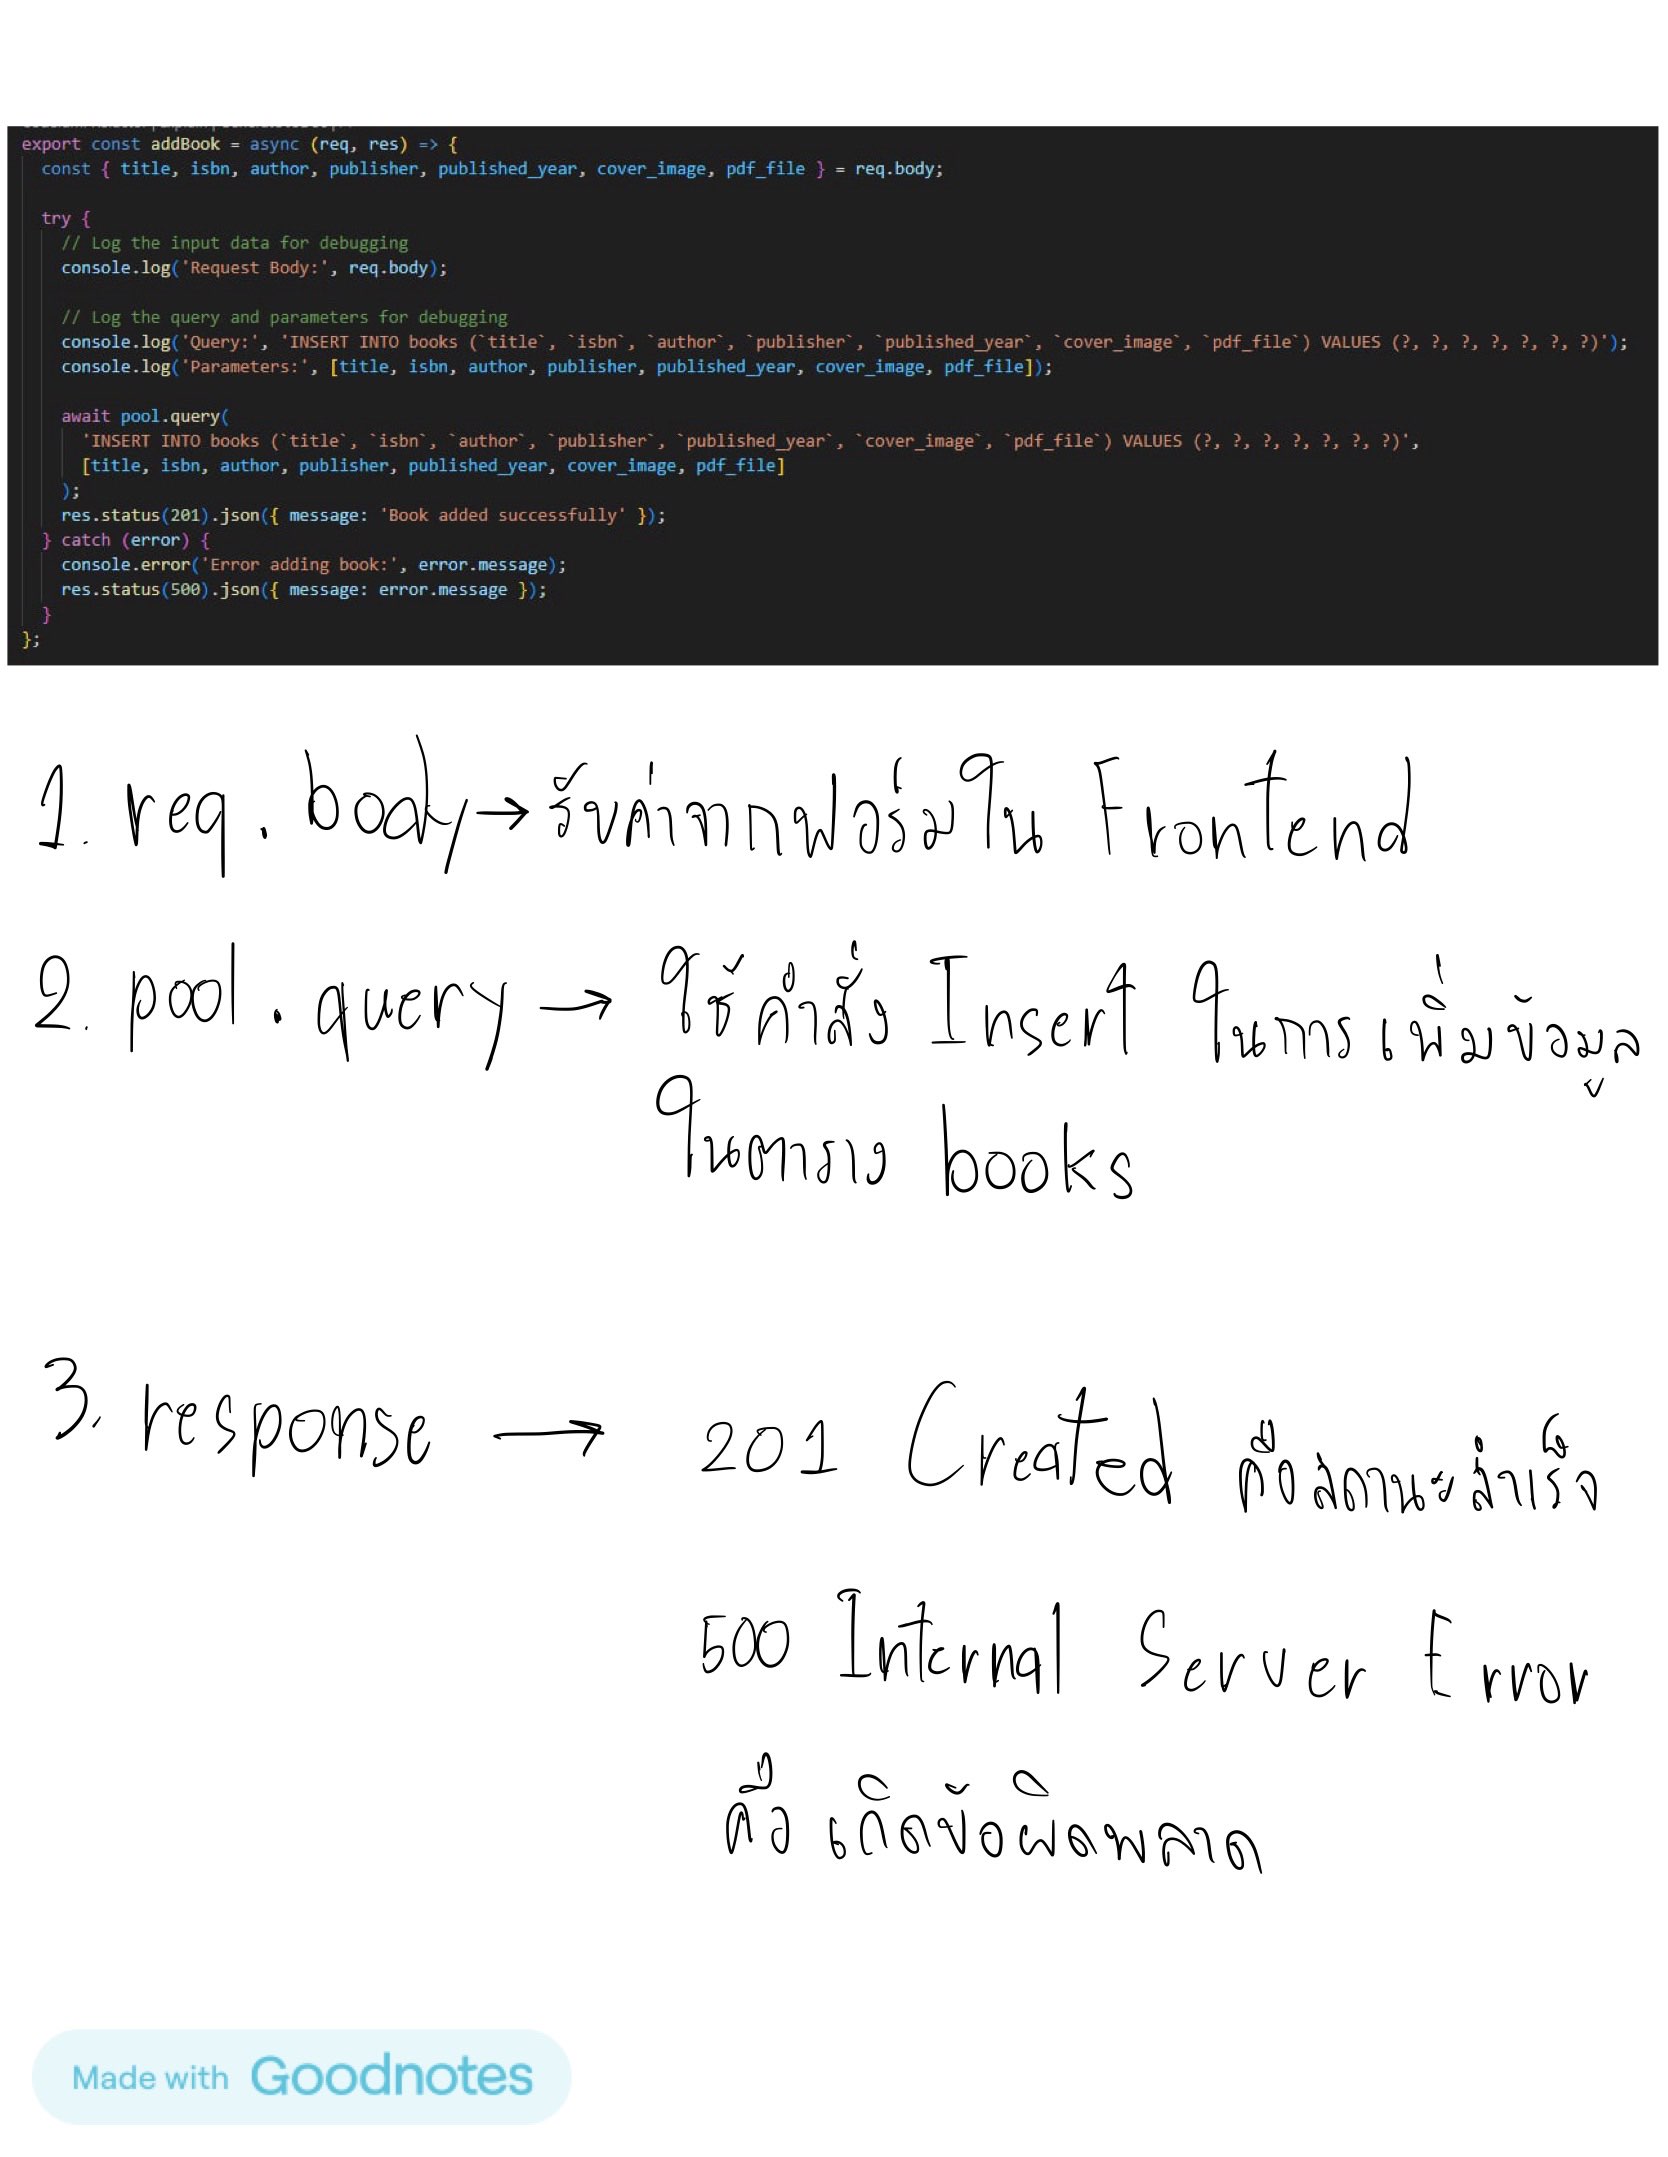 export const addBook = async (req, res) => {
const { title, isbn, author, publisher, published_year, cover_image, pdf_file } = req.body;
try {
// Log the input data for debugging
console.log('Request Body:', req.body);
// Log the query and parameters for debugging
console.log('Query:', 'INSERT INTO books (`title`, `isbn`, `author`, `publisher`, `published_year`, `cover_image`, `pdf_file`) VALUES (?, ?, ?, ?, ?, ?, ?)');
console.log('Parameters:', [title, isbn, author, publisher, published_year, cover_image, pdf_file]);
await pool.query(
'INSERT INTO books (`title`, `isbn`, `author`, `publisher`, `published_year`, `cover_image`, `pdf_file`) VALUES (?, ?, ?, ?, ?, ?, ?)',
[title, isbn, author, publisher, published_year, cover_image, pdf_file]
);
res.status(201).json({ message: 'Book added successfully' });
} catch (error) {
console.error('Error adding book:', error.message);
res.status(500).json({ message: error.message });
}
};
1. req.body → รับค่าจากฟอร์มใน Frontend
2. pool.query → ใช้คำสั่ง Insert ในการเพิ่มข้อมูล
ในตาราง books
3. response → 201 Created คือสถานะสำเร็จ
500 Internal Server Error
คือ เกิดข้อผิดพลาด
Made with Goodnotes